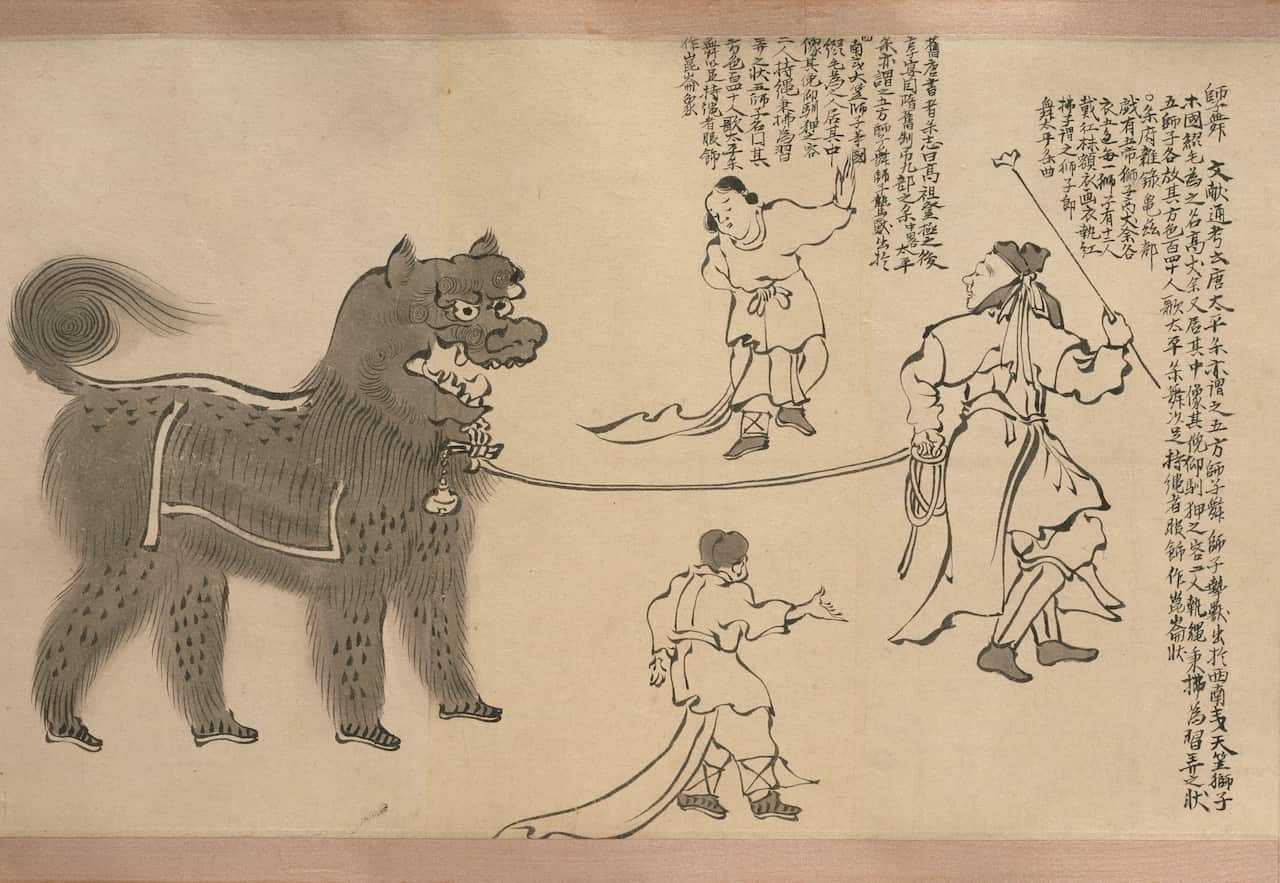 師舞 文献通考云唐太平楽亦謂之五方師子舞師子鷙獣出於西南夷天竺獅子
木國綴毛為之各高丈余又居其中像其俛仰馴狎之容二人執繩秉拂為習弄之状
五師子各放其方色百四十人歌太平楽舞以足持繩者服飾作崑崙状
○楽府雜錄亀茲部
戯有五常獅子高丈余各
衣五色每一獅子有十二人
戴紅抹額衣画衣執紅
拂子謂之獅子郎
舞太平楽曲
舊唐書音楽志曰高祖登極之後
享宴因隋舊制用九部之楽中畧太平
楽亦謂之五方師子舞師子鷙獣出於
西南夷天竺師子等國
綴毛為之人居其中
像其俛仰馴狎之容
二人持繩秉拂為習
弄之状五師子各其
方色百四十人歌太平楽
舞以足持繩者服飾
作崑崙象